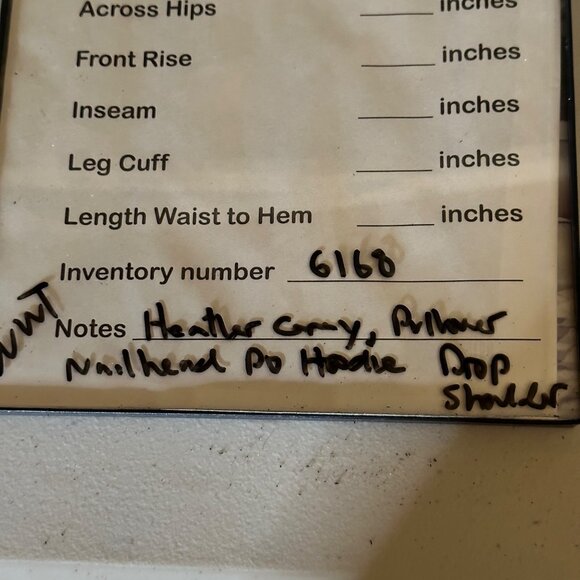 Across Hips ______ inches
Front Rise ______ inches
Inseam ______ inches
Leg Cuff ______ inches
Length Waist to Hem ______ inches
Inventory number 6168
NWT
Notes Heather Gray, Pullover
Nailhead Po Hoodie Drop
Shoulder